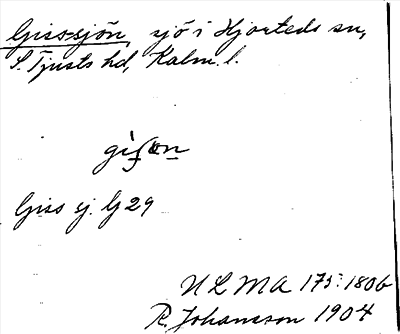 Gissjön, sjö i Hjorteds sn,
S. Tjusts hd, Kalm. l.
Giss sj. Gj 29
ULMA 175:1806
R. Johansson 1904